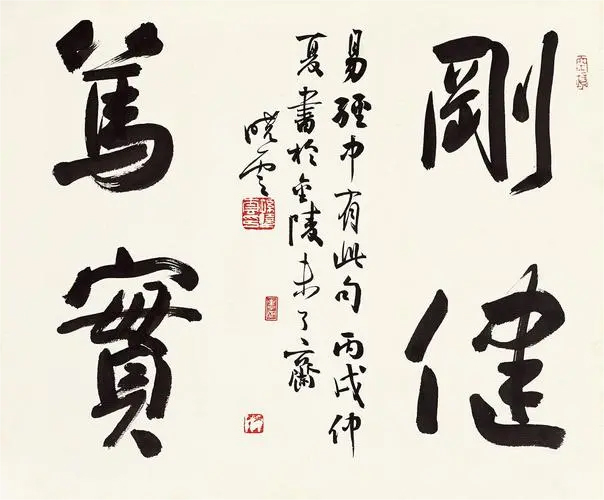 剛健
篤實
易經中有此句丙戌仲
夏書於金陵未了齋
曉雲